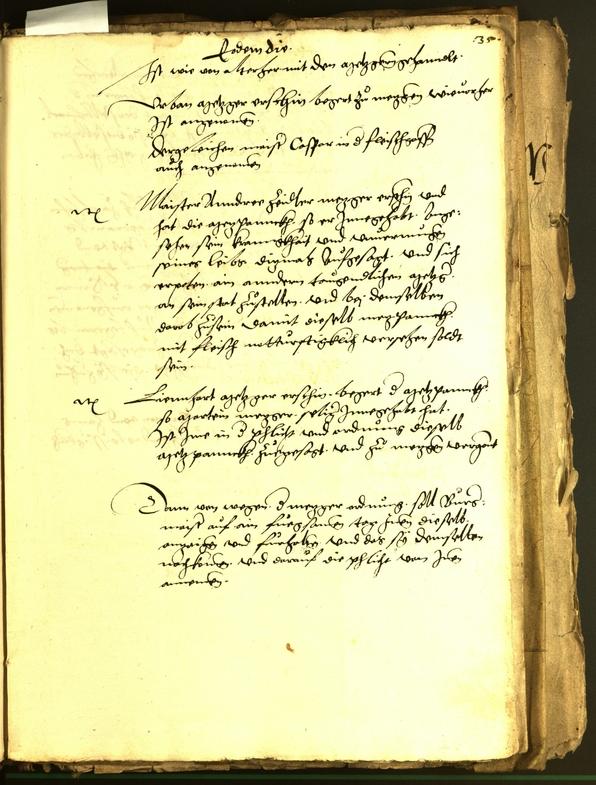 35.
Eodem die.
Ist wie von alterher mit den metzgern gehanndlt.
Urban metzger erschin begert zu metzgen wie vorher
Ist angenomen.
Dergeleichen maister Caspar in d fleischgass
auch angenomen
Maister Anndree Zeidler metzger erschin und
hat die metzpannckh so er Innegehabt. Ange-
sehen sein krannckhait und unvermugen
seines leibs diemals aufgesagt. und sich
erpeten. an anndern tougendlichen metzger
an sein stat zustellen. und bey demselben
darob zusein damit dieselb metzpannckh
mit fleisch notturftigklich versehen soldt
sein.
Liennhart metzger erschin. begert d metzpannckh
so Martein metzger. selig Innegehabt hat.
Ist Ime in d phlicht und ordnung dieselb
metzpannckh zuegesagt. und zu metzgen vergönt
Dann von wegen d metzger ordnung soll Burger-
maister auf ain fuegsamen tag Inen dieselb
anzaigen und fürhalten und das sy demselben
nachkomen. und darauf die phlicht von Inen
annemen.